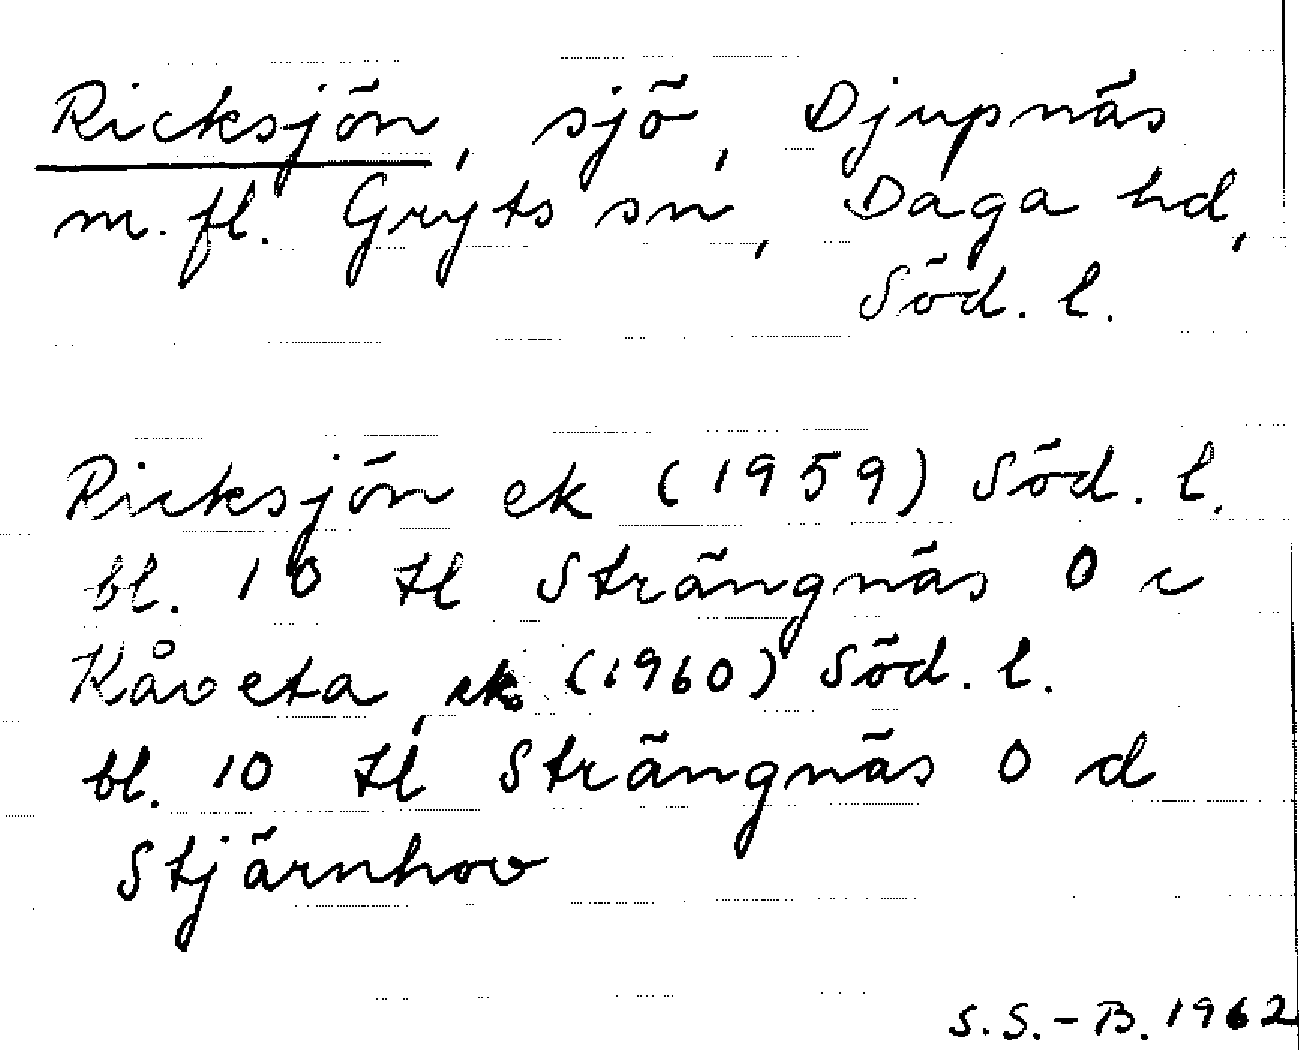 Ricksjön, sjö, Djupnäs
m. fl. Gryts sn, Daga hd,
Söd. l.
Ricksjön ek (1959) Söd. l.
bl. 10 H Strängnäs O c
Kåveta, ek (1960) Söd. l.
bl. 10 H Strängnäs O d
Stjärnhov
S.S.-B. 1962